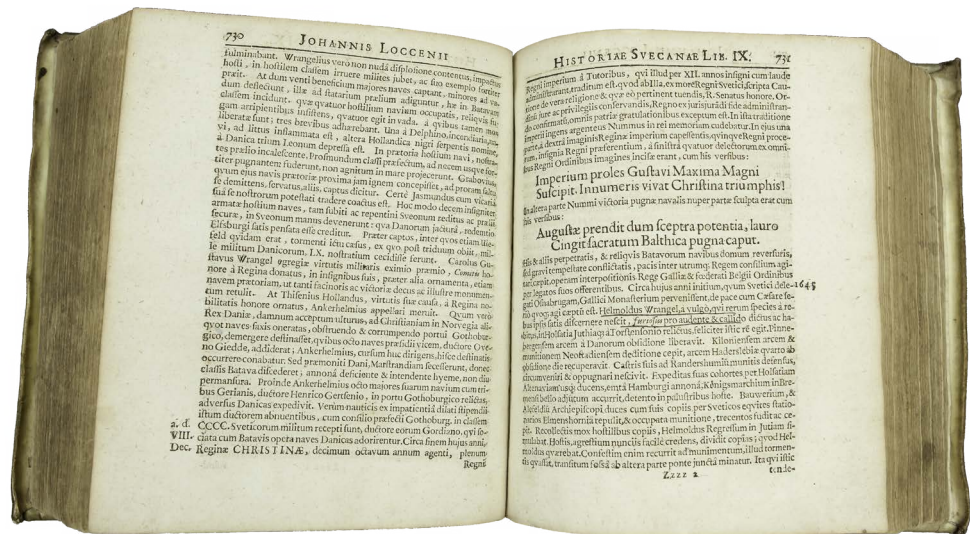 730 JOHANNIS LOCCENII
fulminabant. Wrangelius vero non nudâ displosione contentus, impactus
hosti, in hostilem classem irruere milites jubet, ac suo exemplo fortiter
præit. At dum venti beneficium majores naves captant, minores ad va-
dum deflectunt, illæ ad statarium prælium adiguntur, hæ in Batavam
classem incidunt. quæ quatuor hostilium navium occupatis, reliquis fu-
gam arripientibus insistens, quatuor egit in vada. á quibus tamen mox
liberatæ sunt; tres brevibus adhærebant. Una á Delphino, incendiaria na-
vi, ad littus inflammata est, altera Hollandica nigri serpentis nomine,
à Danica trium Leonum depressa est. In prætoria hostium navi, nostra-
tes prælio incalescente, Prosmundum classi præfectum, ad necem usque for-
titer pugnantem fuderunt, non agnitum in mare projecerunt. Grabovius,
qvum ejus navis prætoriæ proxima jam ignem concepisset, ad procam saltu
se demittens, servatus, aliis, captus dicitur. Certè Jasmundus cum vicaria
sua se nostrorum potestati tradere coactus est. Hoc modo decem insigniter
armatæ hostium naves, tam subiti ac repentini Sveonum reditus ac prælii
securæ, in Sveonum manus devenerunt: qvâ Danorum jacturâ, redemtio
Elfsburgi satis pensata esse creditur. Præter captos, inter qvos etiam Ilse-
feld qvidam erat, tormenti ictu cæsus, ex qvo, post triduum obiit, mil-
le militum Danicorum, LX. nostratium cecidisse ferunt. Carolus Gu-
stavus Wrangel egregiæ virtutis militaris eximio præmio, Comitis ho-
nore à Regina donatus, in insignibus suis, præter alia ornamenta, etiam
navem prætoriam, ut tanti facinoris ac victoriæ decus ac illustre monumen-
tum retulit. At Thisenius Hollandus, virtutis suæ causâ, á Regina no-
bilitatis honore ornatus, Ankerhelmius appellari meruit. Qvum verò
Rex Daniæ, damnum acceptum ulturus, ad Christianiam in Norvegia ali-
qvot naves saxis oneratas, obstruendo & corrumpendo portui Gothobur-
gico, demergere destinasset, qvibus octo naves præsidii vicem, ductore Ove-
no Giedde, addiderat; Ankerhelmius, cursum huc dirigens, hisce destinatis
occurrere conabatur. Sed præmoniti Dani, Marstrandiam secesserunt, donec
classis Batava discederet, annonâ deficiente & intendente hyeme, non diu
permansura. Proinde Ankerhelmius octo majores suarum navium cum tri-
bus Gerianis, ductore Henrico Gertsenio, in portu Gothoburgico relictas,
adversus Danicas expedivit. Verùm nauticis ex impatientia dilati stipendii
istum ductorem abnuentibus, cum consilio præfecti Gothoburg. in classem
CCCC. Sveticorum militum recepti sunt, ductore eorum Gordiano, qvi so-
ciata cum Batavis opera naves Danicas adorirentur. Circa finem hujus anni,
Reginæ CHRISTINÆ, decimum octavum annum agenti, plenum
a. d.
VIII.
Dec.
Regni
HISTORIAE SVECANAE LIB. IX. 731
Regni imperium á Tutoribus, qvi illud per XII. annos insigni cum laude
administrarant, traditum est. qvod ab illa, ex more Regni Svetici, scripta Cau-
tione de vera religione &, quæ eò pertinent tuendis, R. Senatus honore, Or-
dinū jure ac privilegiis conservandis, Regno ex jurisjurādi fide administran-
do confirmato, omnis patriæ gratulationibus exceptum est. In ista traditione
imperii ingens argenteus Nummus in rei memoriam cudebatur. In ejus una
parte, á dextrâ imaginis Reginæ imperium capessentis, qvinqve Regni proce-
rum, insignia Regni præferentium, á sinistrâ quatuor delectorum ex omni-
bus Regni Ordinibus imagines incisæ erant, cum his versibus:
Imperium proles Gustavi Maxima Magni
Suscipit. Innumeris vivat Christina triumphis!
In altera parte Nummi victoria pugnæ navalis nuper partæ sculpta erat cum
his versibus:
Augustæ prendit dum sceptra potentia, lauro
Cingit sacratum Balthica pugna caput.
His & aliis perpetratis, & reliqvis Batavorum navibus domum reversuris,
sed gravi tempestate conflictatis, pacis inter utrumq; Regem consilium agi-
tari cœpit, operam interpositionis Rege Galliæ & fœderati Belgii Ordinibus
per legatos suos offerentibus. Circa hujus anni initium, qvum Svetici dele-
1645
gati Osnabrugam, Gallici Monasterium pervenissent, de pace cum Cæsare se-
riò qvoq; agi cœptū est. Helmoldus Wrangel, á vulgo, qvi rerum species á re-
bus ipsis satis discernere nescit, furiosus pro audente & callido dictus ac ha-
bitus, in Holsatia Juthiaq; á Torstensonio relictus, feliciter istic rē egit. Pinne-
bergensem arcem à Danorum obsidione liberavit. Kiloniensem arcem &
munitionem Neostadiensem deditione cepit, arcem Haderslebiæ qvarto ab
obsidione die recuperavit. Castris suis ad Randershum munitis defensus,
circumveniri & oppugnari nescivit. Expeditas suas cohortes per Holsatiam
Altenaviam usq; ducens, emtâ Hamburgi annonâ, Königsmarchium in Bre-
mensi bello adjutum accurrit, detento in palustribus hoste. Bauwerium, &
Alefeldiū Archiepiscopi duces cum suis copiis per Sveticos eqvites statio-
narios Elmenshornæ repulit, & occupata munitione, trecentos fudit ac ce-
pit. Recollectis mox hostilibus copiis, Helmoldus Regressum in Jutiam si-
mulabat. Hostis, agrestium nunciis facilè credens, dividit copias; qvod Hel-
moldus qværebat. Confestim enim recurrit ad munimentum, illud tormen-
tis qvassat, transitum fossâ ab altera parte ponte junctâ minatur. Ita qvi istic
Zzzz 2
tende-